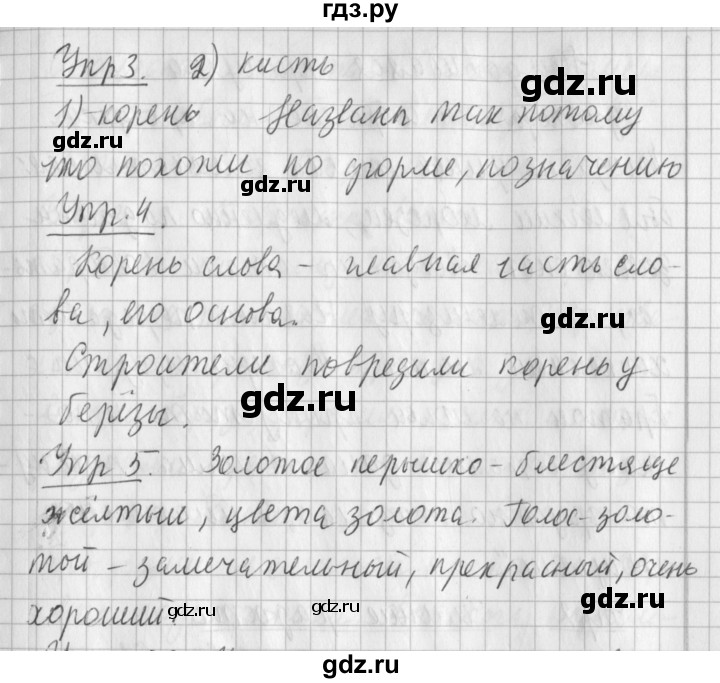 гдз.ру
Упр 3. 2) кисть
gdz.ru
1)-корень Названы так потому
gdz.ru
что похожи по форме, по значению
gdz.ru
Упр. 4.
Корень слова - главная часть сло-
gdz.ru
ва, его основа.
gdz.ru
Строители повредили корень у
gdz.ru
берёзы.
Упр 5. Золотое перышко - блестяще
gdz.ru
жёлтый, цвета золота. Голос-золо-
gdz.ru
той - замечательный, прекрасный, очень
хороший.
gdz.ru gdz.ru gdz.ru
gdz.ru